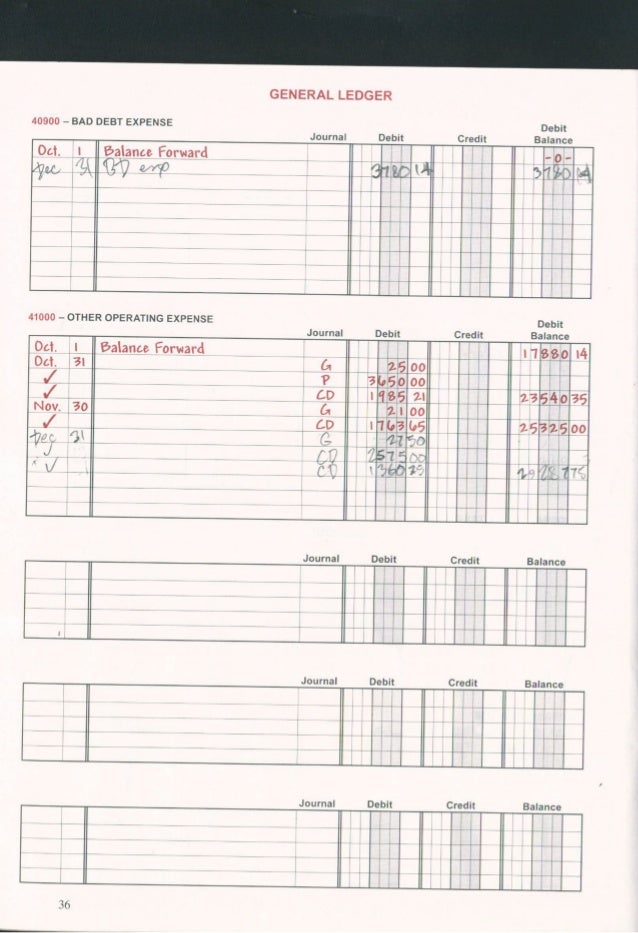 GENERAL LEDGER
40900 – BAD DEBT EXPENSE
Journal Debit Credit Debit Balance
Oct. 1 Balance Forward -0-
Dec 31 BD exp 3780 14 3780 14
41000 – OTHER OPERATING EXPENSE
Journal Debit Credit Debit Balance
Oct. 1 Balance Forward 17880 14
Oct. 31 G 25 00
✓ P 3650 00
✓ CD 1985 21 23540 35
Nov. 30 G 21 00
✓ CD 1763 65 25325 00
Dec 31 G 27 50
CD 2575 00
✓ CD 1360 25 29287 75
Journal Debit Credit Balance
Journal Debit Credit Balance
Journal Debit Credit Balance
36